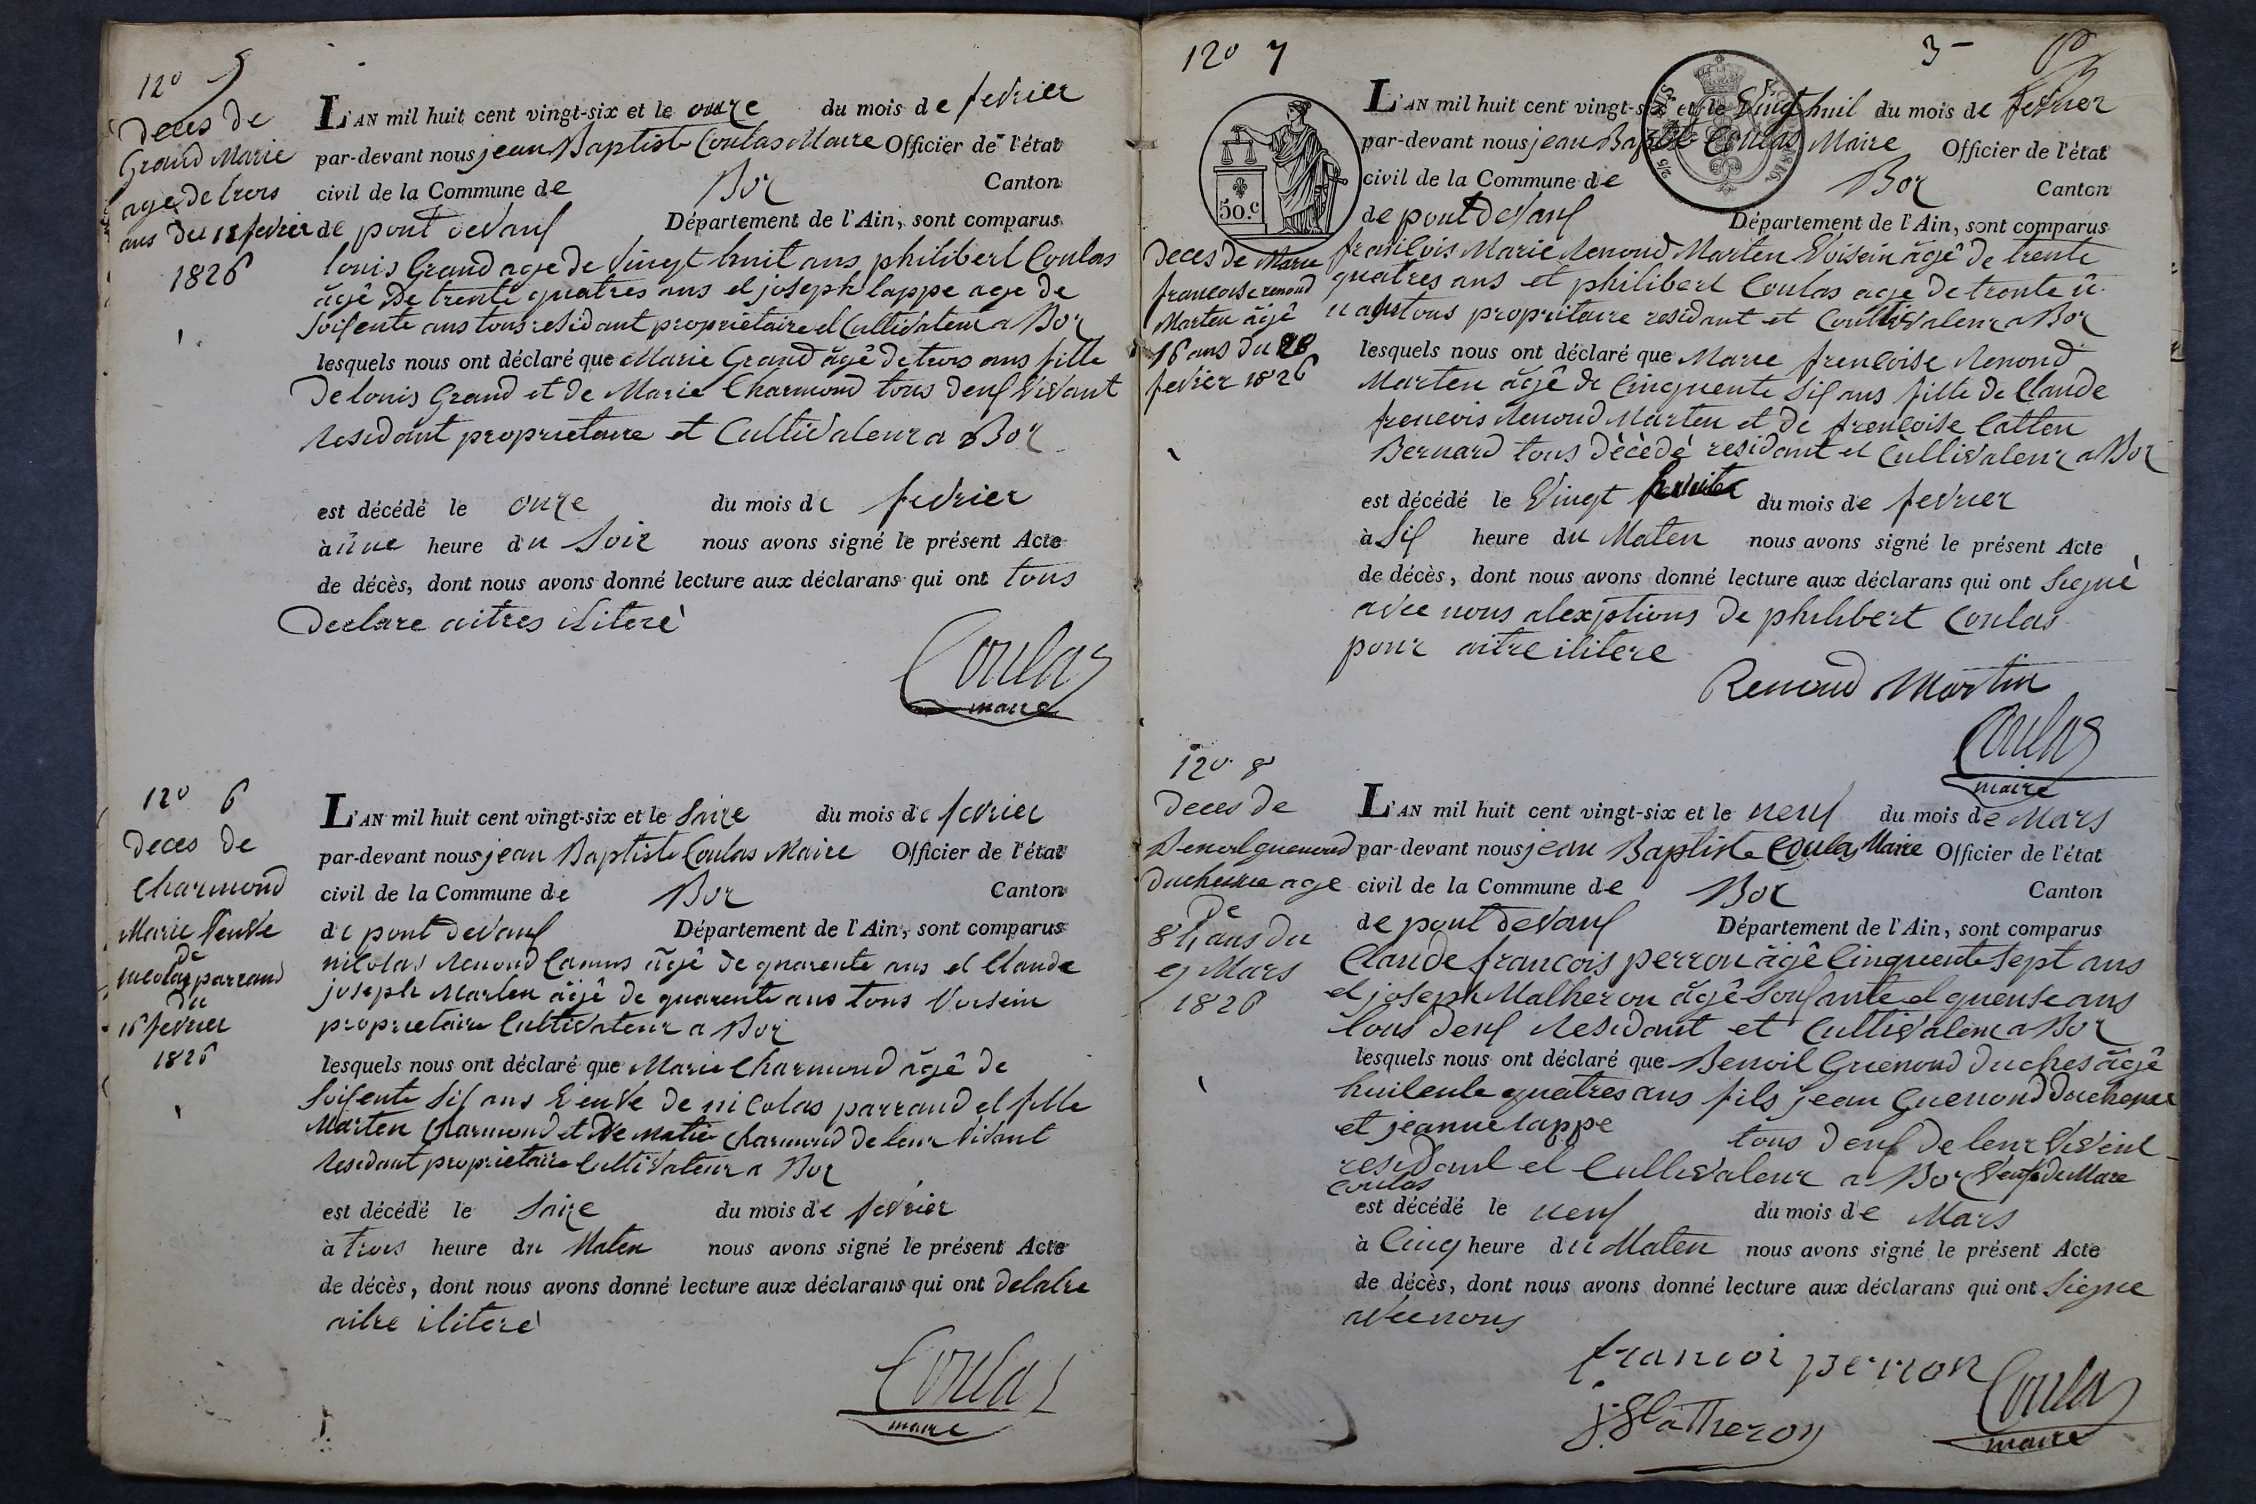 12º 5
Deces de
Grand Marie
age de trois
ans du 11 fevrier
1826
L'AN mil huit cent vingt-six et le onze du mois de fevrier
par-devant nous jean Baptiste Coulas Maire Officier de l'état
civil de la Commune de Boz Canton
de pont devaux Département de l'Ain, sont comparus
louis Grand age de Vingt huit ans philibert Coulas
âgê de trente quatres ans et joseph lappe age de
soisente ans tous residant proprietaire et Cultivateur a Boz
lesquels nous ont déclaré que Marie Grand âgê de trois ans fille
De louis Grand et de Marie Charmond tous deux Vivant
Residant proprietaire et Cultivateur a Boz
est décédé le onze du mois de fevrier
à üne heure du Soir nous avons signé le présent Acte
de décès, dont nous avons donné lecture aux déclarans qui ont tous
Declare aitres iliteré
Coulas
maire
12º 6
Deces de
Charmond
Marie Veuve
de
nicolas parraud
du
16 fevrier
1826
L'AN mil huit cent vingt-six et le Saize du mois de fevrier
par-devant nous jean Baptiste Coulas Maire Officier de l'état
civil de la Commune de Boz Canton
de pont devaux Département de l'Ain, sont comparus
nicolas Renoud Camus âgê de quarente ans et Claude
joseph Marten âgê de quarente ans tous Voisein
proprietaire Cultivateur a Boz
lesquels nous ont déclaré que Marie Charmond âgê de
Soisente Six ans Veuve de nicolas parraud et fille
Marten Charmond et De Marie Charmond de leur Vivant
Residant proprietaire Cultivateur a Boz
est décédé le Saize du mois de fevrier
à trois heure du Maten nous avons signé le présent Acte
de décès, dont nous avons donné lecture aux déclarans qui ont delalre
aitre iliteré
Coulas
maire
12º 7
3
50.c
Deces de Marie
francoise renoud
Marten âgê
16 ans du 28
fevrier 1826
L'AN mil huit cent vingt-six et le Vingt huit du mois de fevrier
par-devant nous jean Baptiste Coulas Maire Officier de l'état
civil de la Commune de Boz Canton
de pont devaux Département de l'Ain, sont comparus
francois Marie Renoud Marten Voisein âgê de trente
quatres ans et philibert Coulas age de trente
tous propritaire residant et Coultivateur a Boz
lesquels nous ont déclaré que Marie frencoise Renoud
Marten âgê de Cinquente Six ans fille de Claude
frencois Renoud Marten et de frencoise Catten
Bernard tous dècèdé residant et Cultivateur a Boz
est décédé le Vingt huit du mois de fevrier
à Six heure du Maten nous avons signé le présent Acte
de décès, dont nous avons donné lecture aux déclarans qui ont Siegné
avec nous alexptions de philibert Coulas
pour aitre ilitere
Renoud Martin
Coulas
maire
12º 8
Deces de
Benoit guenoud
Duchesne age
de
84 ans du
9 Mars
1826
L'AN mil huit cent vingt-six et le neuf du mois de Mars
par-devant nous jean Baptiste Coulas Maire Officier de l'état
civil de la Commune de Boz Canton
de pont devaux Département de l'Ain, sont comparus
Claude francois perron âgê Cinquente Sept ans
et joseph Matheron âgê Soixante et quense ans
tous deux Residant et Cultivateur a Boz
lesquels nous ont déclaré que Benoit Guenoud Duches âgê
huitente quatres ans fils jean Guenoud Duchesne
et jeanne lappe tous deux de leur Viveint
residant et Cultivateur a Boz Veuf de Marie
Coulas
est décédé le neuf du mois de Mars
à Cinq heure du Maten nous avons signé le présent Acte
de décès, dont nous avons donné lecture aux déclarans qui ont Siegne
avec nous
francoi perron
Coulas
maire
j. Matheron